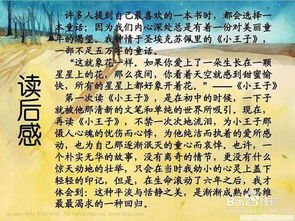 读后感
许多人提到自己最喜欢的一本书时，都会选择一
本童话；因为我们内心深处总是有着一份对美丽童
年的渴望。我钟情于圣埃克苏佩里的《小王子》，
一部不足五万字的童话。
“这就象花一样，如果你爱上了一朵生长在一颗
星星上的花，那么夜间，你看着天空就感到甜蜜愉
快，所有的星星上都好象开着花。”——《小王子》
第一次读《小王子》，是在初中的时候，一下子
就被他那清新的文笔和单纯的世界所吸引。现在，
再读《小王子》，不禁一次次地流泪，为小王子那
慑人心魂的忧伤而心悸，为他纯洁而执着的爱所感
动，也为自己那逐渐泯灭的童心而哀悼。也许，一
个朴实无华的故事，没有离奇的情节，更没有什么
惊天动地的壮举，只会在当时我幼小的心灵上盖下
轻轻的印记，但是，在生命滚动了六年之后，我才
体会到：这种平淡与恬静之美，是渐渐成熟的思维
最最渴求的一种回归。
Baidu经验